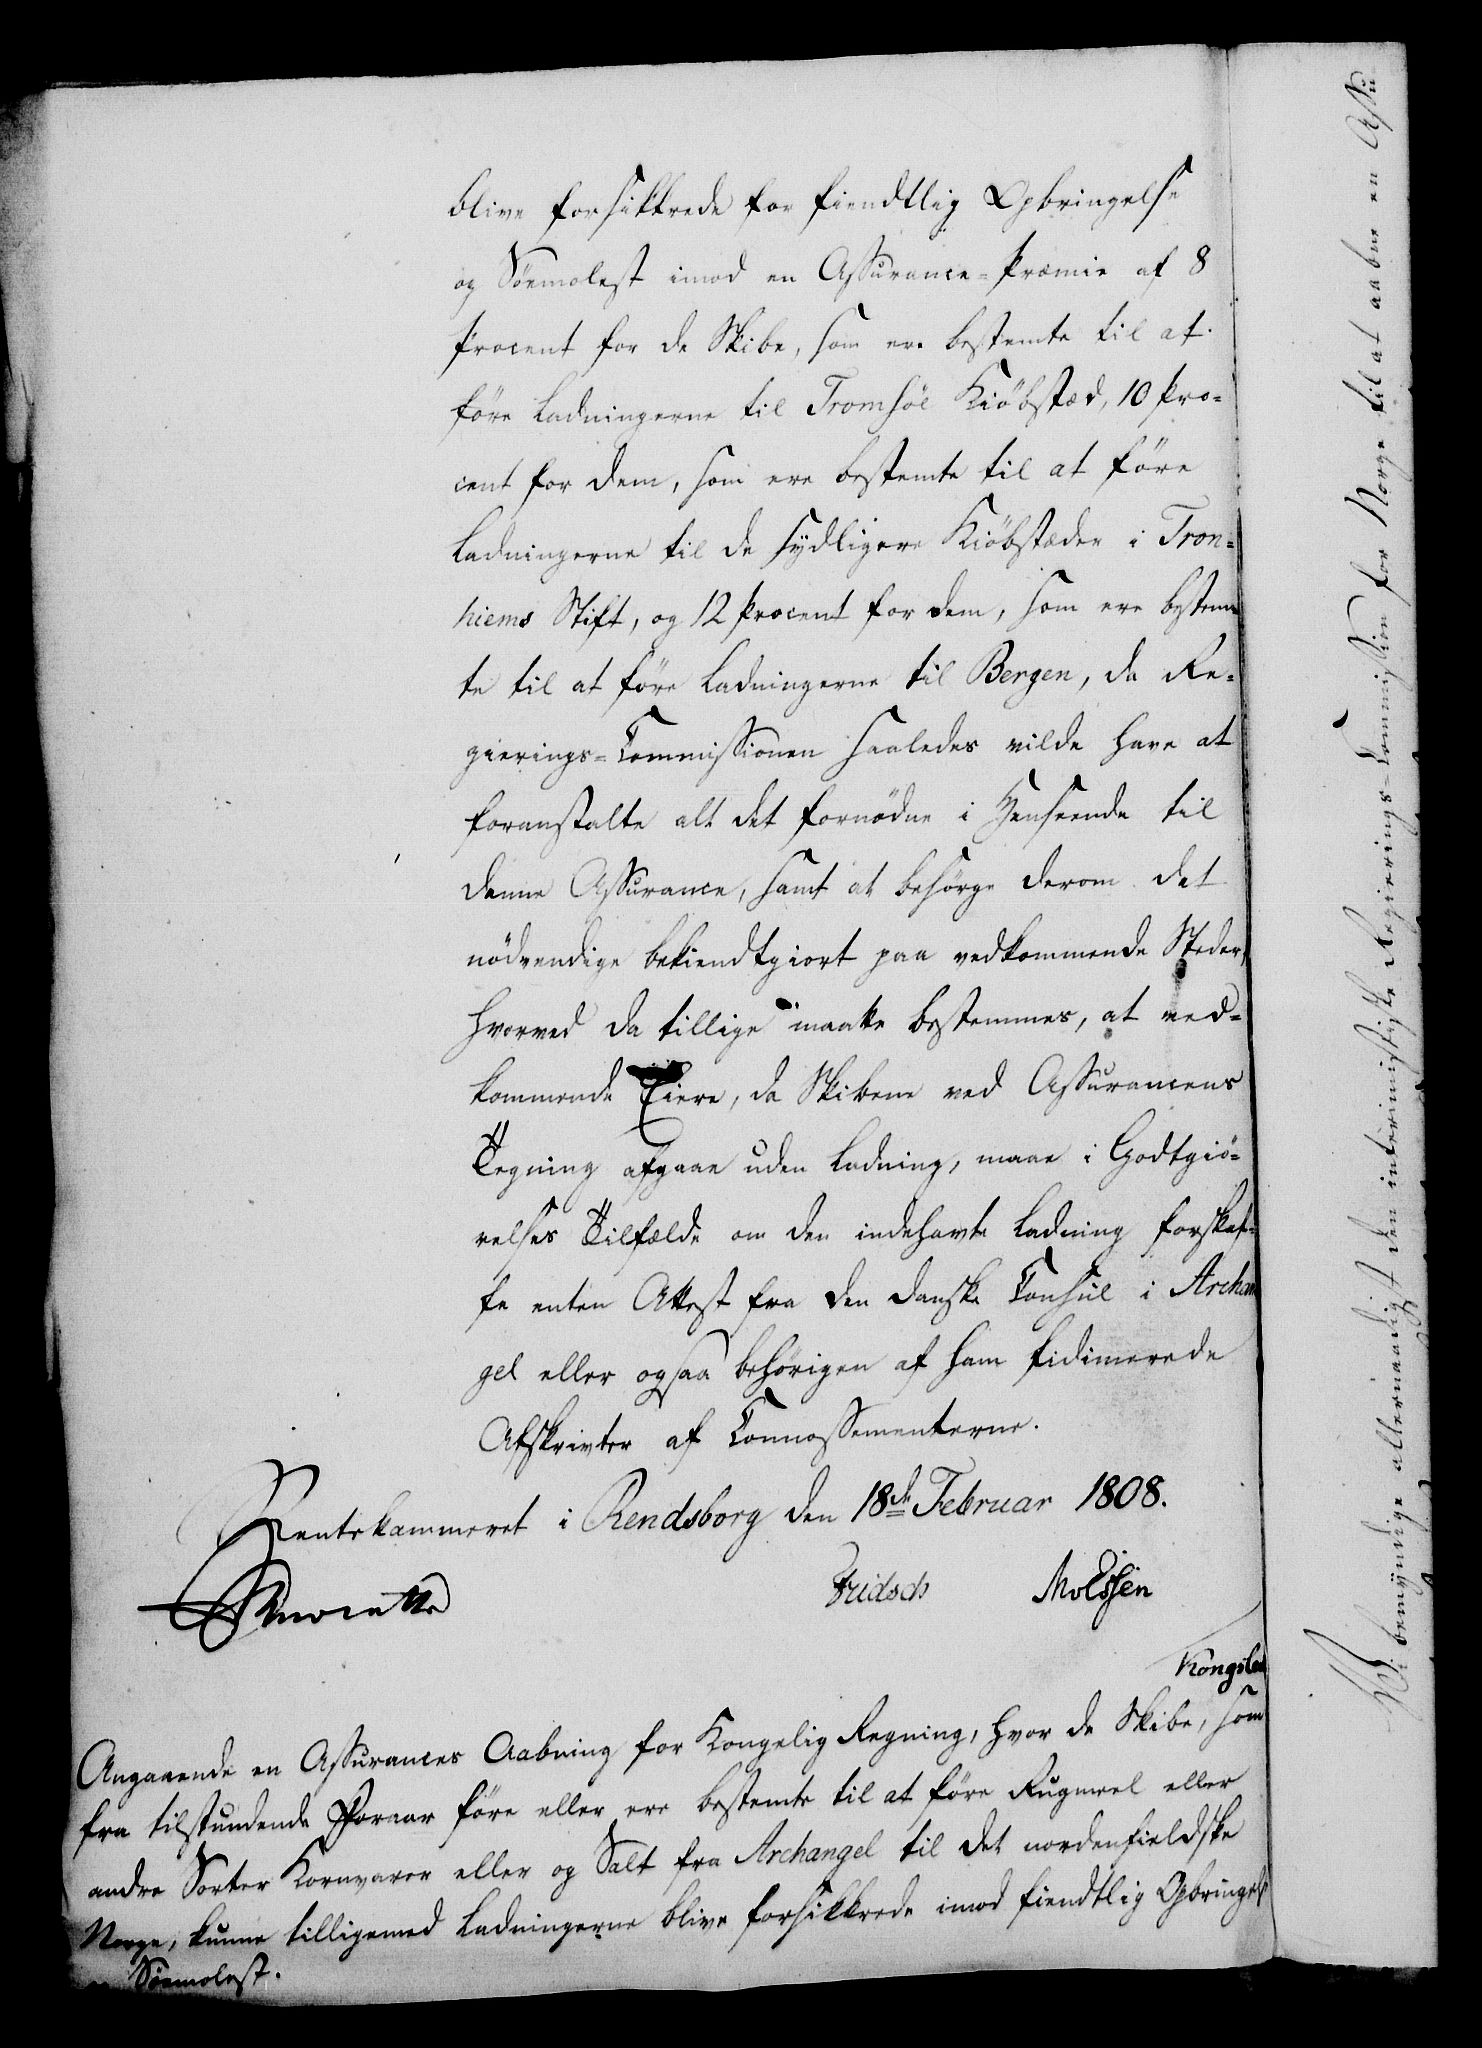 blive forsikkrede for fiendtlig Opbringelse
og Söemolest imod en Assurance-Præmie af 8
Procent for de Skibe, som ere bestemte til at
före Ladningerne til Tromsöe Kiöbstæd, 10 Pro-
cent for dem, som ere bestemte til at före
Ladningerne til de sydligere Kiöbstæder i Tron-
hiems Stift, og 12 Procent for dem, som ere bestem-
te til at före Ladningerne til Bergen, da Re-
gierings-Commissionen saaledes vilde have at
foranstalte alt det fornödne i Henseende til
denne Assurance, samt at besörge derom det
nödvendige bekiendtgiort paa vedkommende Steder,
hvorved da tillige maatte bestemmes, at ved-
kommende Eiere, da Skibene ved Assurancens
Tegning afgaae uden Ladning, maae i Godtgiö-
relses Tilfælde om den indehavte Ladning forskaf-
fe enten Attest fra den danske Consul i Archan
gel eller ogsaa behörigen af ham fidimerede
Afskrivter af Connossementerne.
Rentekammeret i Rendsborg den 18de Februar 1808.
Fridsch Molssen
Angaaende en Assurances Aabning for Kongelig Regning, hvor de Skibe, som
fra tilstundende Foraar före eller ere bestemte til at före Rugmeel eller
andre Sorter Kornvarer eller og Salt fra Archangel til det nordenfieldske
Norge, kunne tilligemed Ladningerne blive forsikkrede imod fiendtlig Opbringelse
og Söemolest.
Vi bemyndige allernaadigst den interimistiske Regierings-Commission for Norge til at aabne en Assu